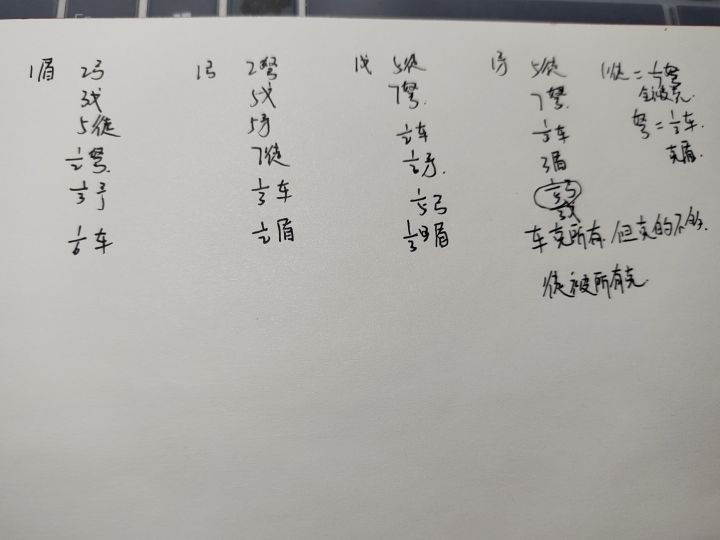 1眉 2弓
3戈
5徒
1/2弩
1/3弓
1/6车
1弓 2弩
5戈
5矛
7徒
1/3车
1/2眉
1戈 5徒
7弩
1/2车
1/2矛
1/5弓
1/3眉
1矛 5徒
7弩
1/2车
3眉
1/5弓
3戈
车克所有,但克的不多
徒被所有克
1徒=1/7弩
全被克
弩=1/2车
克眉